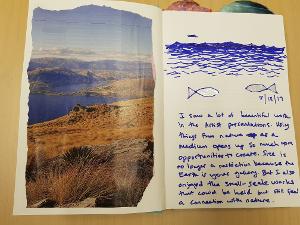 7/18/17
I saw a lot of beautiful work
in the Artist presentations. Using
things from nature as a
medium opens up so much more
opportunities to create. Size is
no longer a restriction because the
Earth is your gallery. But I also
enjoyed the small-scale works
that could be held but still feel
a connection with nature.